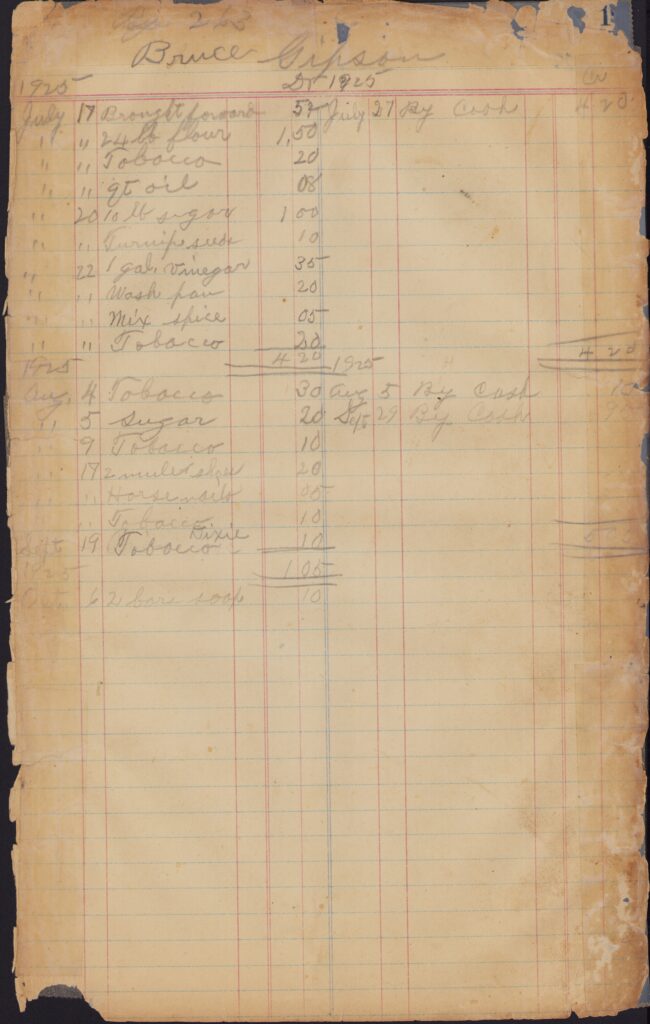 1
Bruce Gipson
1925 Dr 1925 Cr
July 17 Brought forward 52 July 27 By Cash 4 20
" " 24 lb flour 1,50
" " Tobacco 20
" " qt oil 08
" 20 10 lb sugar 1 00
" " Turnip seed 10
" 22 1 gal, vinegar 35
" " Wash pan 20
" " Mix spice 05
" " Tobacco 20 4 20
1925 4 20 1925
Aug, 4 Tobacco 30 Aug 5 By Cash
" 5 Sugar 20 Sept 29 By Cash
9 Tobacco 10
17 2 mule shoes 20
" Horse nails 05
" Tobacco 10
Sept 19 Tobacco Dixie 10
1925 1 05
Oct 6 2 bars soap 10